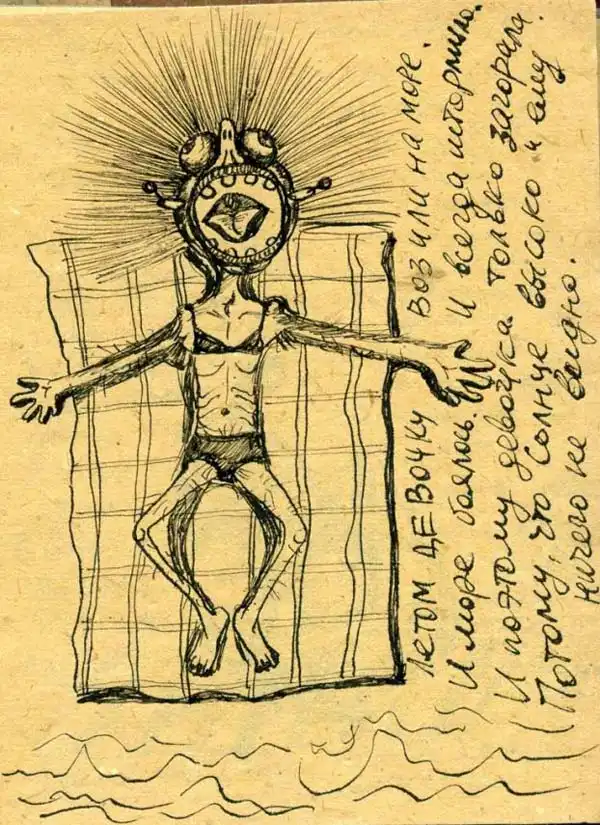 Летом девочку возили на море.
И море боялось. И всегда штормило.
И поэтому девочка только загорала.
Потому, что Солнце высоко и ему
ничего не видно.